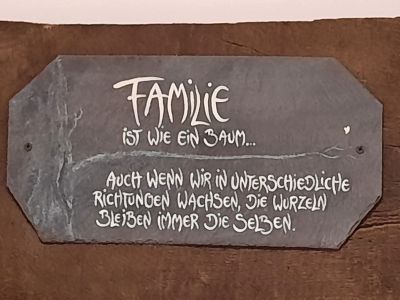 FAMILIE
IST WIE EIN BAUM...
AUCH WENN WIR IN UNTERSCHIEDLICHE
RICHTUNGEN WACHSEN, DIE WURZELN
BLEIBEN IMMER DIE SELBEN.